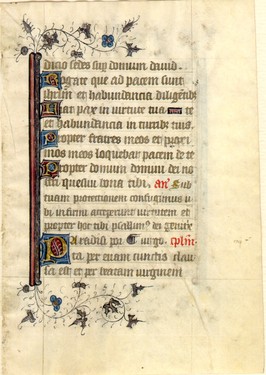 dicio sedes sup domum david.
Rogate que ad pacem sunt
ihrlm et habundancia diligētibꝰ
Fiat pax in virtute tua et te
et habundancia in turribꝰ tuis.
Propter fratres meos et proxi
mos meos loquebar pacem de te
Propter domum domini dei no
stri quesivi bona tibi. añ. Sub
tuam protectionem confugimus u
bi infirmi acceperunt virtutem et
propter hoc tibi psallimꝰ dei genitrix
Paradisi por Virgo.
ta per evam cunctis clau
sa est et per beatam virginem